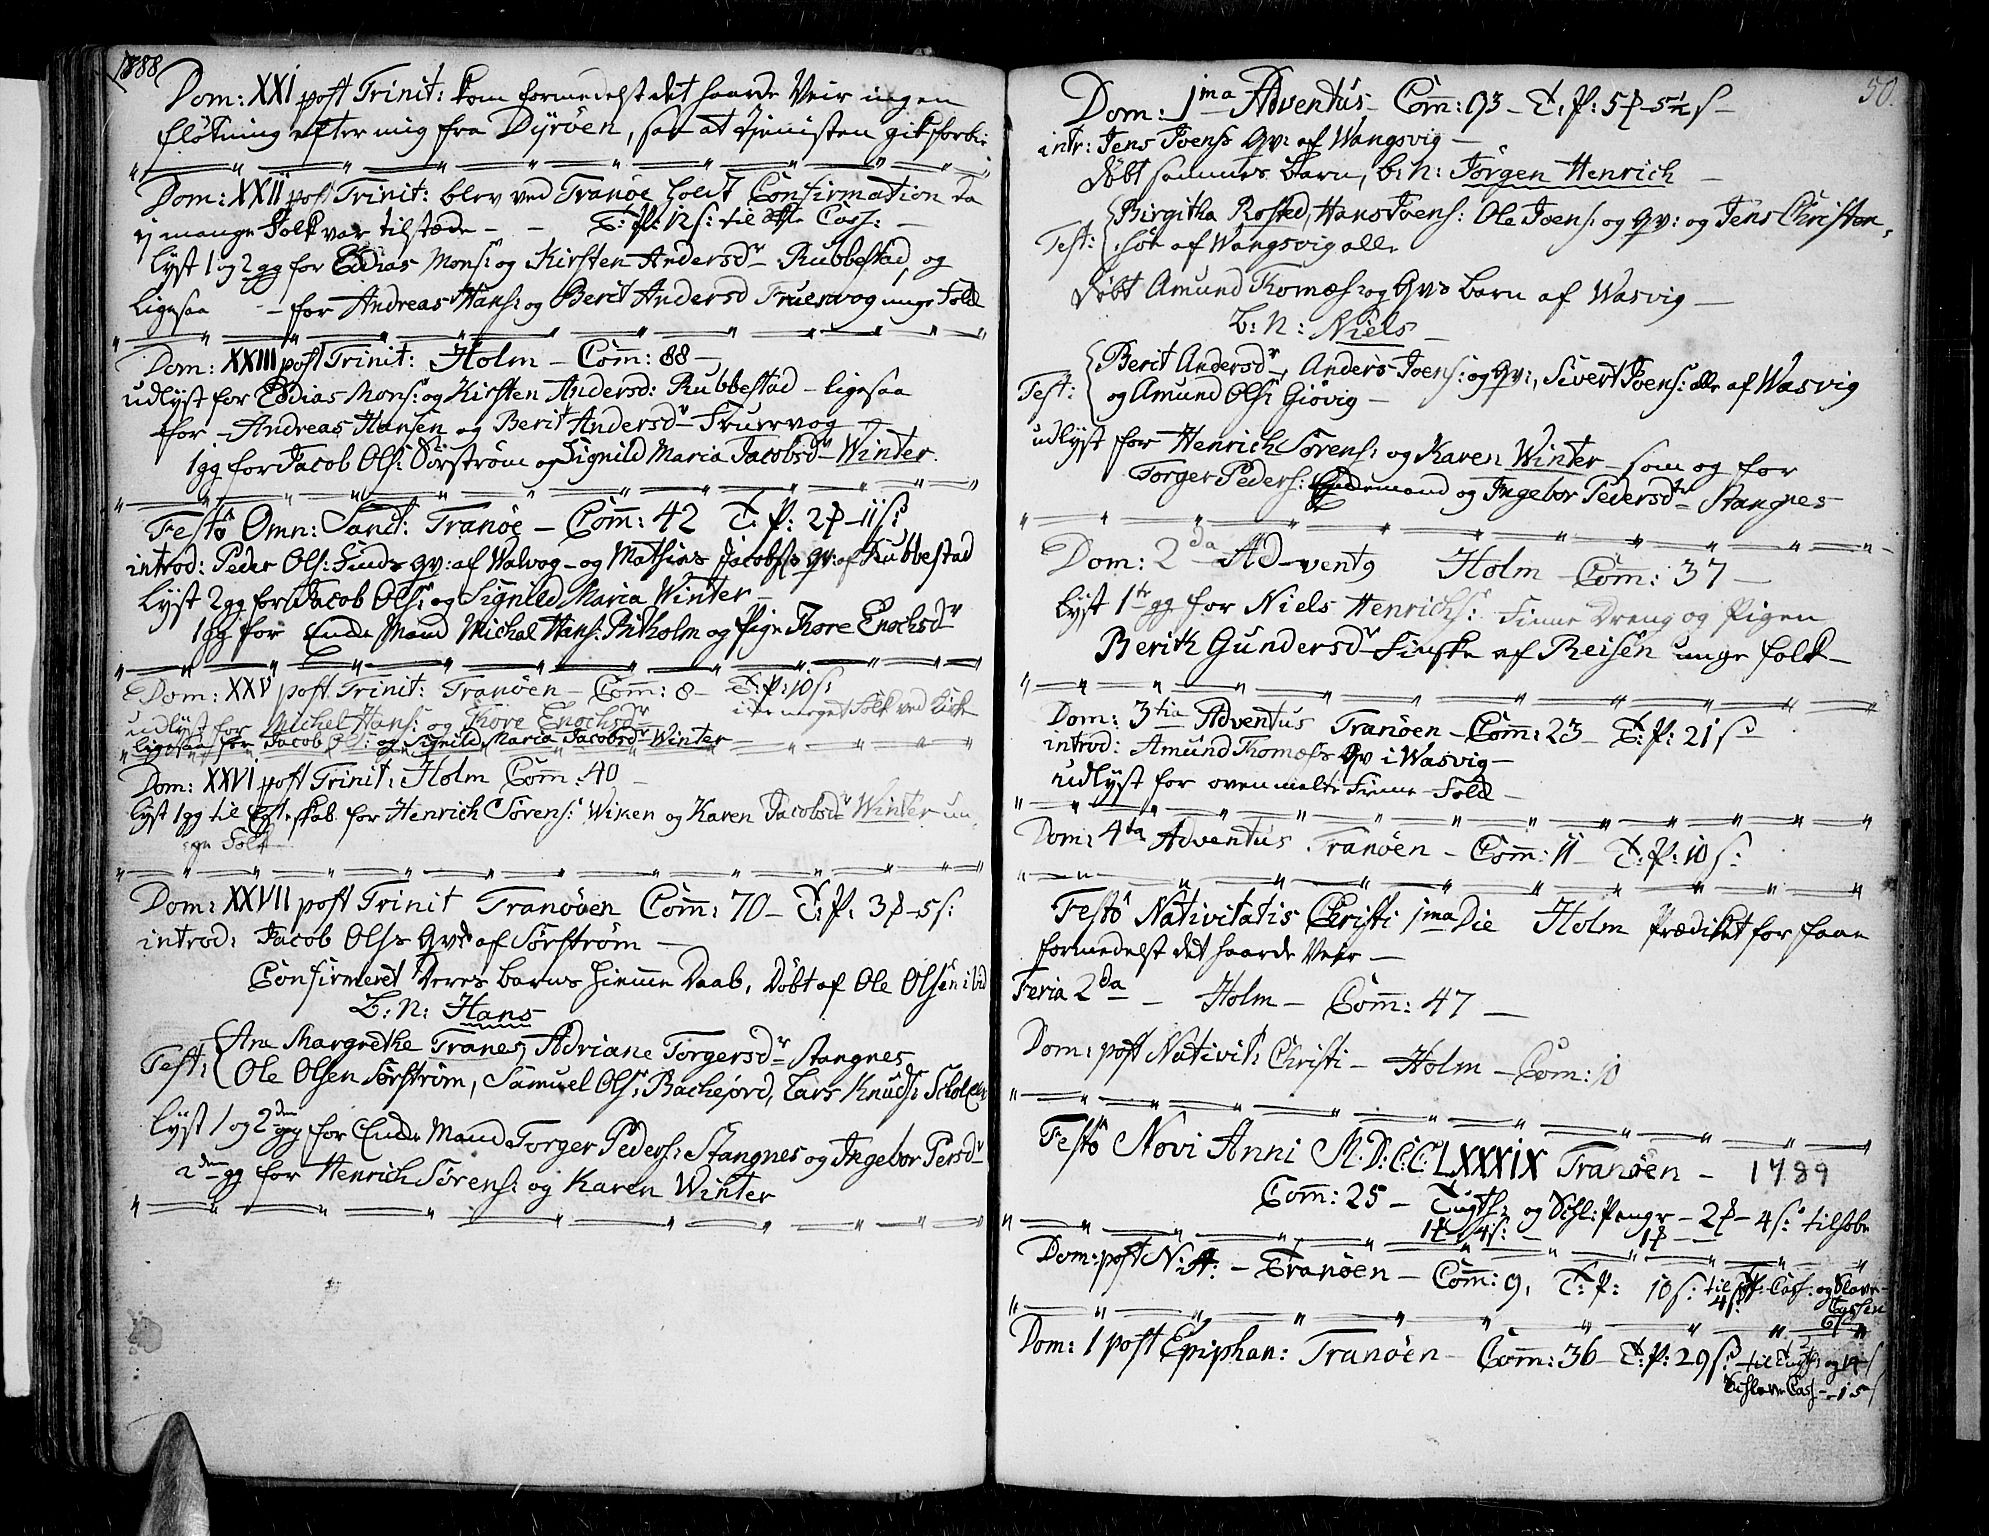 1788
Dom: XXI post Trinit: kom formedelst det haarde Veir ingen
fløtning efter mig fra Dÿröen, saa at tienisten gik forbi.
Dom: XXII post Trinit: blev ved Tranöe holdt Confirmation da
ej mange Folk var tilstæde - - T: P: 12 s: til Cass: -
Lyst 1 og 2 gg for Edias Mons: og Kirsten Andersdr Rubbestad, og
ligesaa - for Andreas Hans: og Berit Andersd Fruervog unge Folk
Dom: XXIII post Trinit: Holm - Com: 88 -
udlyst for Edias Mons: og Kirsten Andersd: Rubbestad - ligesaa
for Andreas Hansen og Berit Andersdr Fruervog -
1 gg for Jacob Ols: Sörström og Signild Maria Jacobsdr Winter.
Festo Omn: Sanct: Tranöe - Com: 42 T: P: 2 - 11 s:
introd: Peder Ols: Finds qv: af Walvog - og Mathias Jacobs's qv: af Rubbestad
Lyst 2 gg for Jacob Ols: og Signild Maria Winter -
1 gg for Enke Mand Michal Hans: Bitholm og Pige Kore Enochsdr
Dom: XXV post Trinit: Tranöen - Com: 8 - T: P: 10 s:
i meget Folk ved Kirke
udlyst for Michel Hans: og Kore Enochsdr
ligesaa for Jacob Ols: og Signild Maria Jacobsdr Winter
Dom: XXVI post Trinit: Holm Com: 40 -
Lyst 1 gg til Egteskab for Henrich Sörens: Wiken og Karen Jacobsdr Winter un-
ge Folk -
Dom: XXVII post Trinit Tranöen Com: 70 - T: P: 3 - 5 s:
introd: Jacob Ols's Qv: af Sörström -
Confirmeret Deres barns hiemme Daab, Døbt af Ole Olsen ibid
b: n: Hans
Test: Ane Margrethe Tranes, Adriane Torgersdr Stangnes
Ole Olsen Sörström, Samuel Ols: Bachejord, Lars Knuds:
Lyst 1 og 2den gg for Enke Mand Torger Peders: Stangnes og Ingebor Persdr
2den gg for Henrich Sörens: og Karen Winter
50.
Dom: 1ma Adventus - Com: 93 - T: P: 5 - 5½ s -
intr: Jens Joens's Qv: af Wangsvig -
døbt sammes barn, b: n: Jörgen Henrich -
Test: Birgitha Rosted, Hans Joens: Ole Joens: og Qv: og Jens Christen-
søn af Wangsvig alle
døbt Amund Thomæs: og Qvs barn af Wasvig -
b: n: Niels -
Test: Berit Andersdr, Anders Joens: og Qv:, Sivert Joens: alle af Wasvig
og Amund Ols: Giövig -
udlyst for Henrich Sörens: og Karen Winter - som og for
Torger Peders: Enkemand og Ingebor Pedersdtr Stangnes -
Dom: 2da Advent9 Holm - Com: 37 -
Lyst 1te gg for Niels Henrichs: Finne Dreng og Pigen
Berith Gundersdr Finske af Reisen unge folk -
Dom: 3tia Adventus Tranöen - Com: 23 - T: P: 21 s
introd: Amund Thomæs's Qv i Wasvig -
udlyst for ovenmelte Finne-Folk -
Dom: 4ta Adventus Tranöen - Com: 11 - T: P: 10 s:
Festo Nativitatis Christi 1ma Die Holm Prædiket for faae
formedelst det haarde Veir -
Feria 2da - Holm - Com: 47 -
Dom: post Nativit: Christi - Holm - Com: 10
Festo Novi Anni M.D.C.C.LXXXIX Tranöen - 1789
Com: 25 - Tugth: og Schl: Penge - 2 - 4 s: tilsobe
1 - 4 s: - 1
Dom: post N: A: - Tranöen - Com: 9, T: P: 10 s: til Cass: og Slave
4 s Cassen
6 s
Dom: 1 post Epiphan: Tranöen - Com: 36 - T: P: 29 s til Tugth: og 14 s
Schlave Cass - 15 s